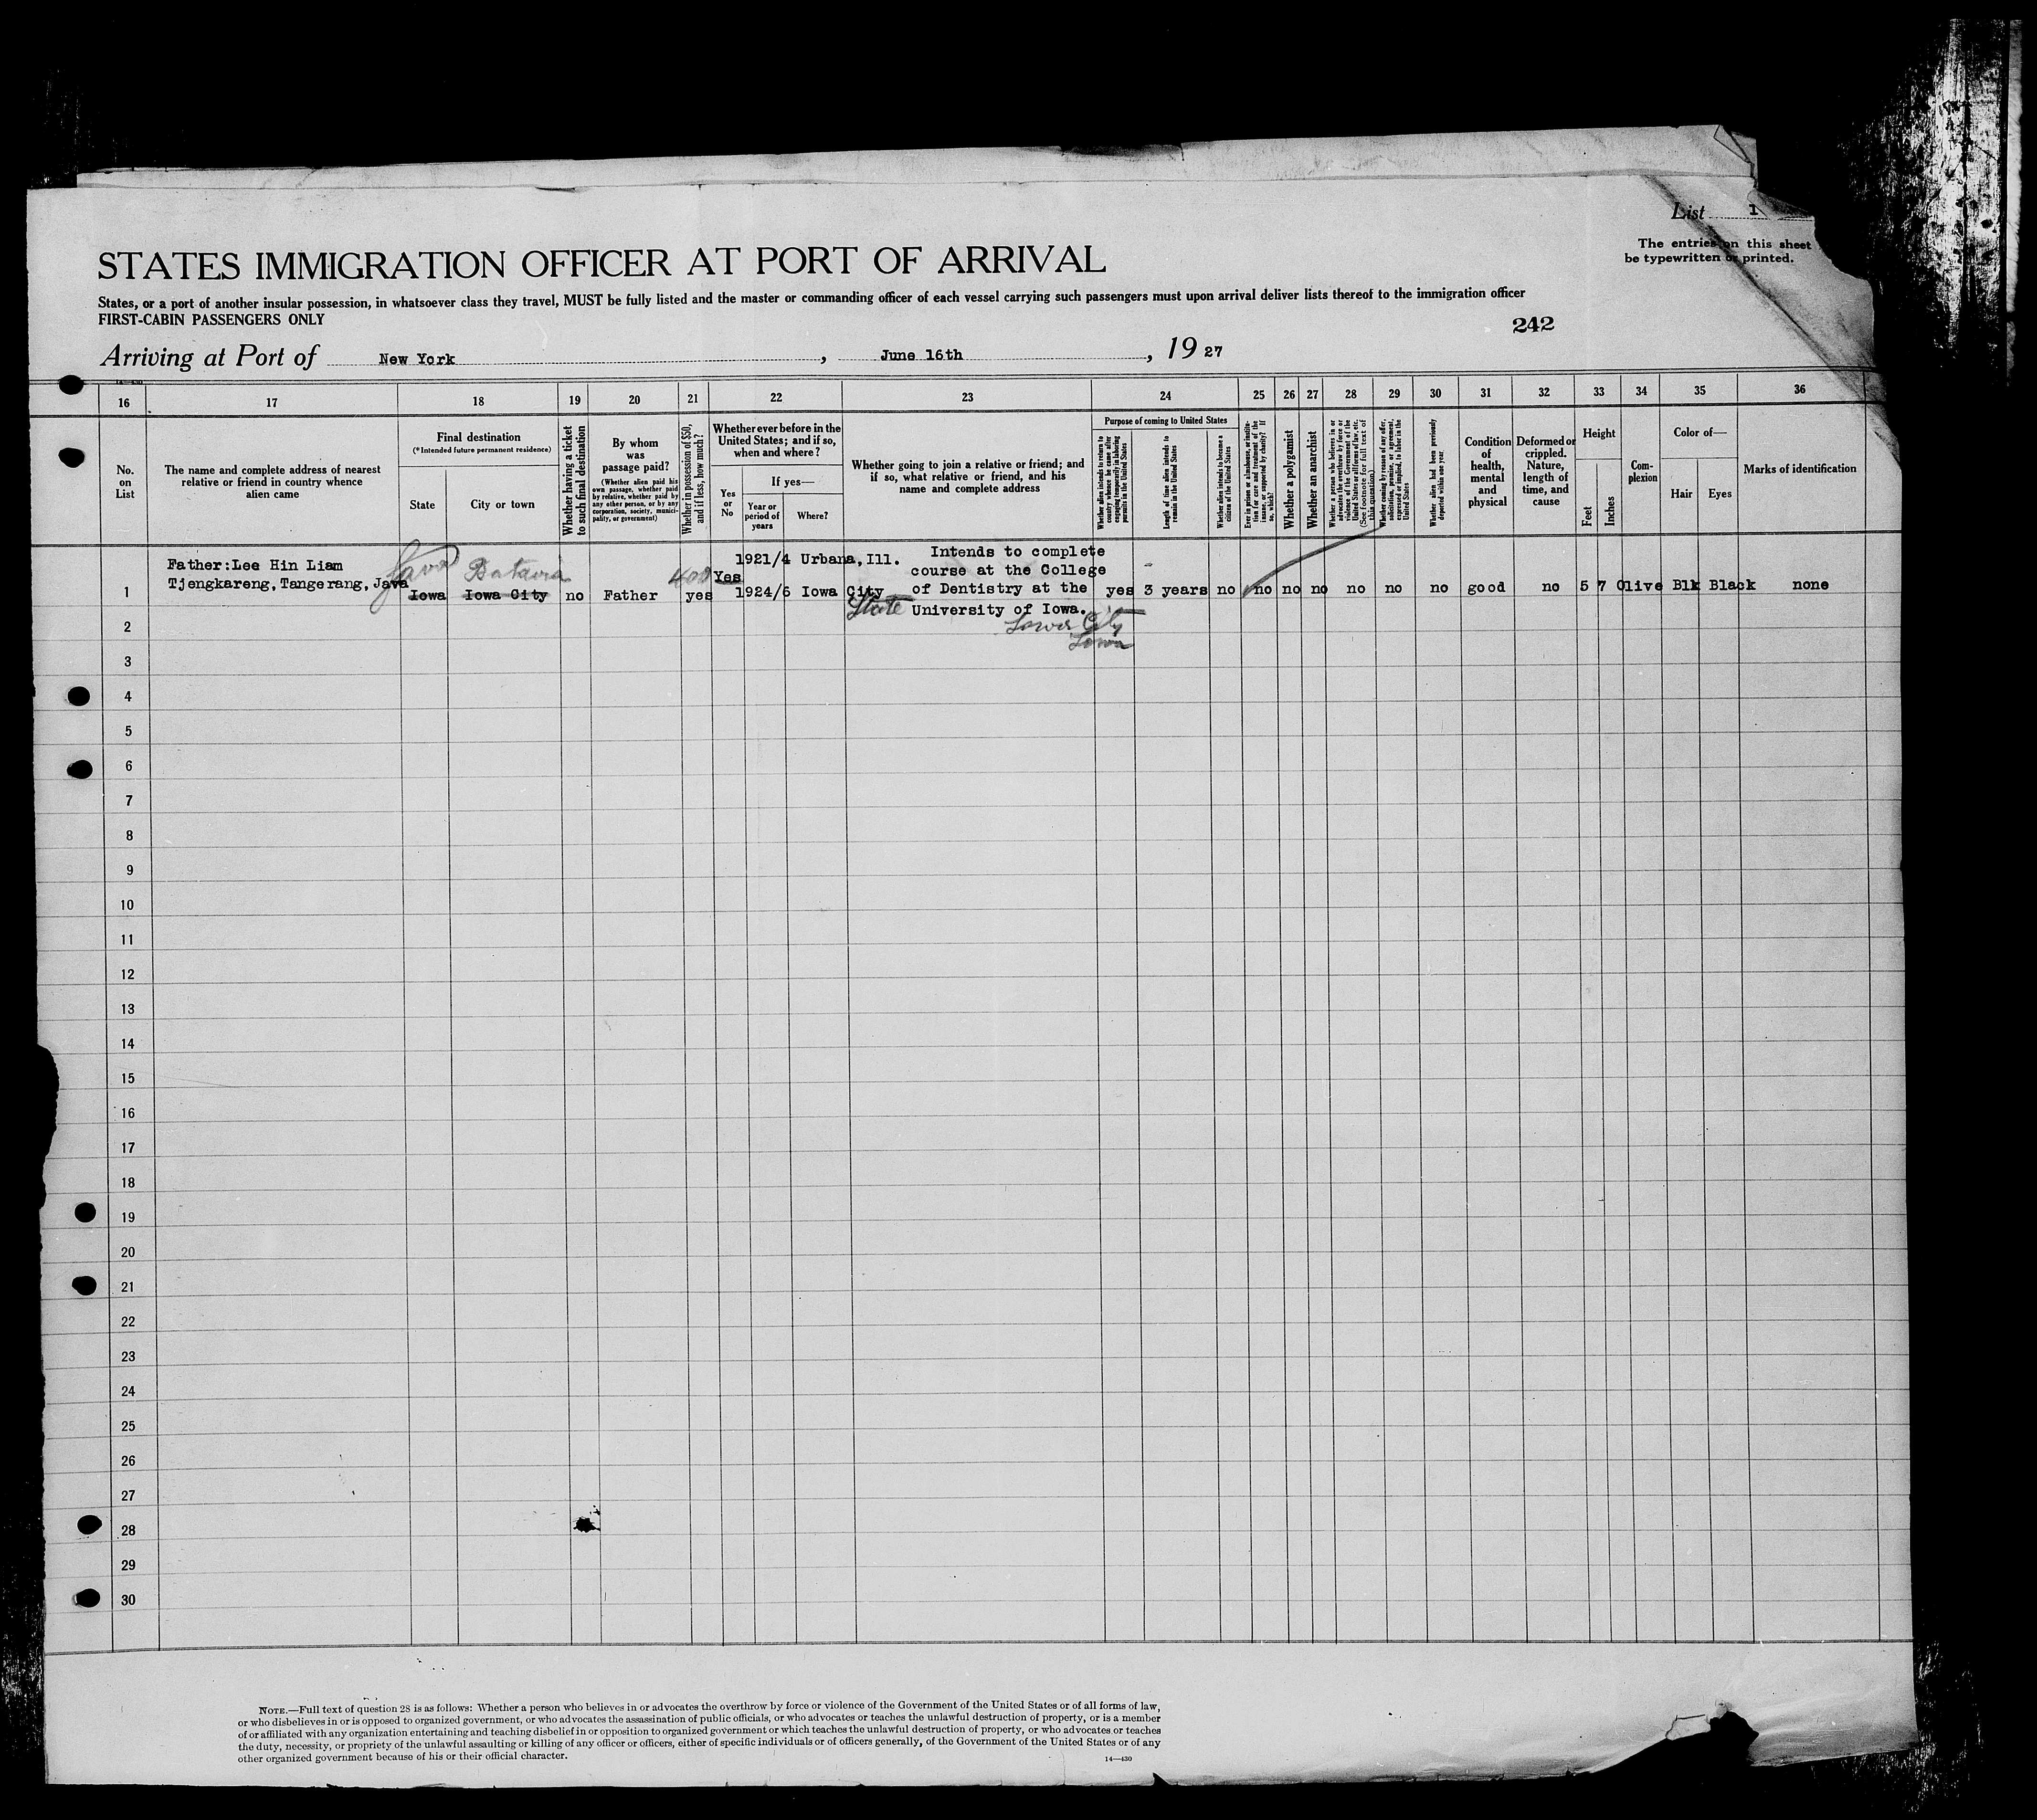 List 1
The entries on this sheet
be typewritten or printed.
STATES IMMIGRATION OFFICER AT PORT OF ARRIVAL
States, or a port of another insular possession, in whatsoever class they travel, MUST be fully listed and the master or commanding officer of each vessel carrying such passengers must upon arrival deliver lists thereof to the immigration officer
FIRST-CABIN PASSENGERS ONLY
242
Arriving at Port of New York, June 16th, 1927
16 17 18 19 20 21 22 23 24 25 26 27 28 29 30 31 32 33 34 35 36
No.
on
List
The name and complete address of nearest
relative or friend in country whence
alien came
Final destination
(*Intended future permanent residence)
State
City or town
Whether having a ticket
to such final destination
By whom
was
passage paid?
(Whether alien paid his
own passage, whether paid
by relative, whether paid by
any other person, or by any
corporation, society, munici-
pality, or government)
Whether in possession of $50,
and if less, how much?
Whether ever before in the
United States; and if so,
when and where?
Yes
or
No
If yes—
Year or
period of
years
Where?
Whether going to join a relative or friend; and
if so, what relative or friend, and his
name and complete address
Purpose of coming to United States
Whether alien intends to return to
country whence he came after
engaging temporarily in laboring
pursuits in the United States
Length of time alien intends to
remain in the United States
Whether alien intends to become a
citizen of the United States
Ever in prison or almshouse, or institu-
tion for care and treatment of the
insane, or supported by charity? If
so, which?
Whether a polygamist
Whether an anarchist
Whether a person who believes in or
advocates the overthrow by force or
violence of the Government of the
United States or all forms of law, etc.
(See footnote for full text of
this question)
Whether coming by reason of any offer,
solicitation, promise, or agreement,
expressed or implied, to labor in the
United States
Whether alien had been previously
deported within one year
Condition
of
health,
mental
and
physical
Deformed or
crippled.
Nature,
length of
time, and
cause
Height
Feet
Inches
Com-
plexion
Color of—
Hair
Eyes
Marks of identification
1
Father:Lee Hin Liam
Tjengkareng, Tangerang, Java
Java Batavia
Iowa Iowa City
no
Father
400
yes
Yes
1921/4 Urbana, Ill.
1924/6 Iowa City
Intends to complete
course at the College
of Dentistry at the
State University of Iowa.
Iowa City
Iowa
yes 3 years no no no no no no no good no 5 7 Olive Blk Black none
2
3
4
5
6
7
8
9
10
11
12
13
14
15
16
17
18
19
20
21
22
23
24
25
26
27
28
29
30
NOTE.—Full text of question 28 is as follows: Whether a person who believes in or advocates the overthrow by force or violence of the Government of the United States or of all forms of law,
or who disbelieves in or is opposed to organized government, or who advocates the assassination of public officials, or who advocates or teaches the unlawful destruction of property, or is a member
of or affiliated with any organization entertaining and teaching disbelief in or opposition to organized government or which teaches the unlawful destruction of property, or who advocates or teaches
the duty, necessity, or propriety of the unlawful assaulting or killing of any officer or officers, either of specific individuals or of officers generally, of the Government of the United States or of any
other organized government because of his or their official character.
14—430